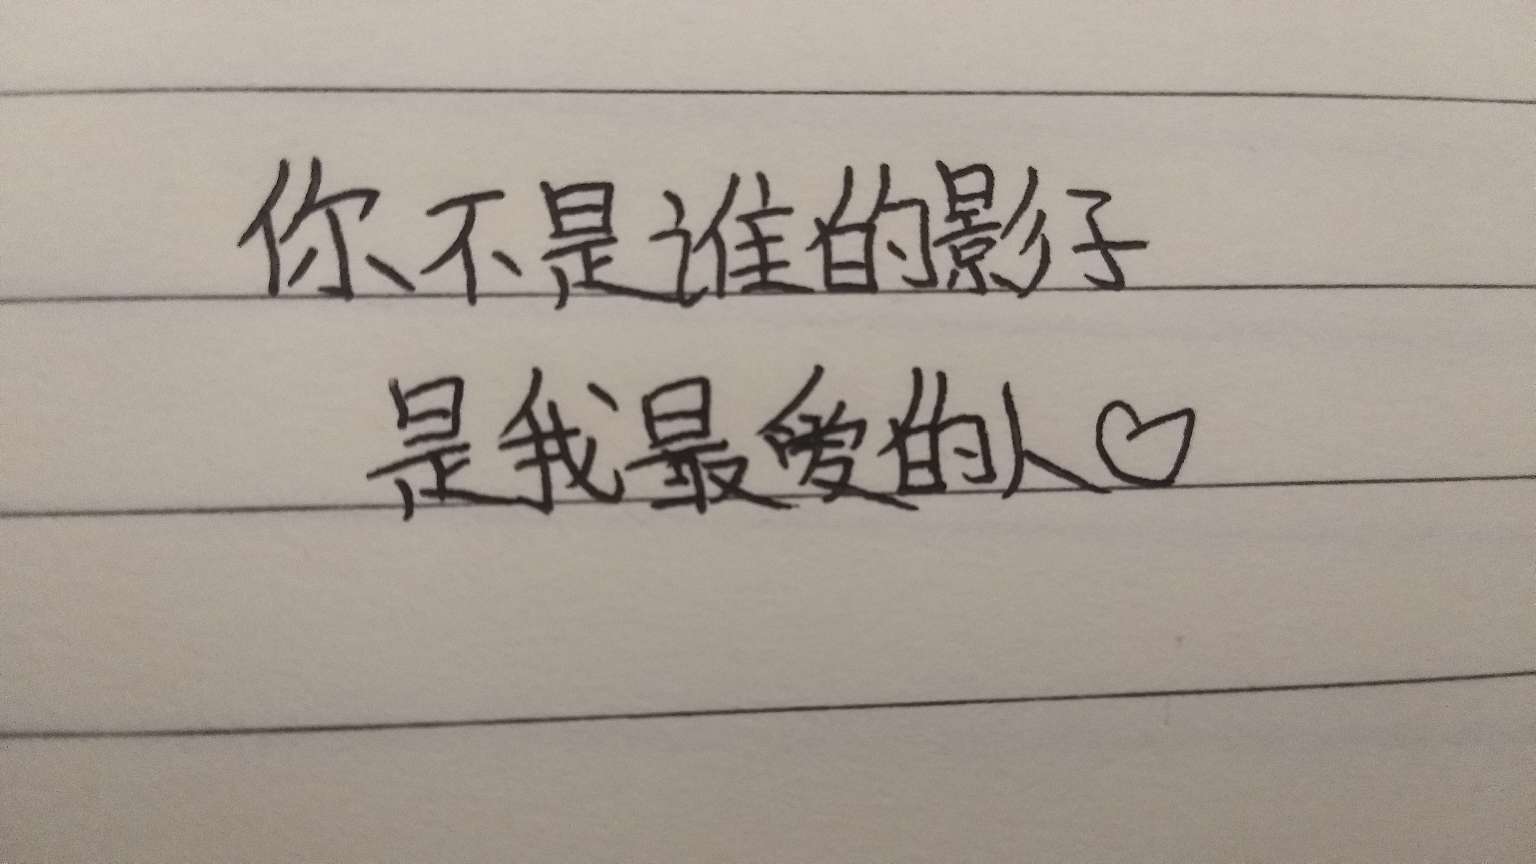 你不是谁的影子
是我最爱的人♡